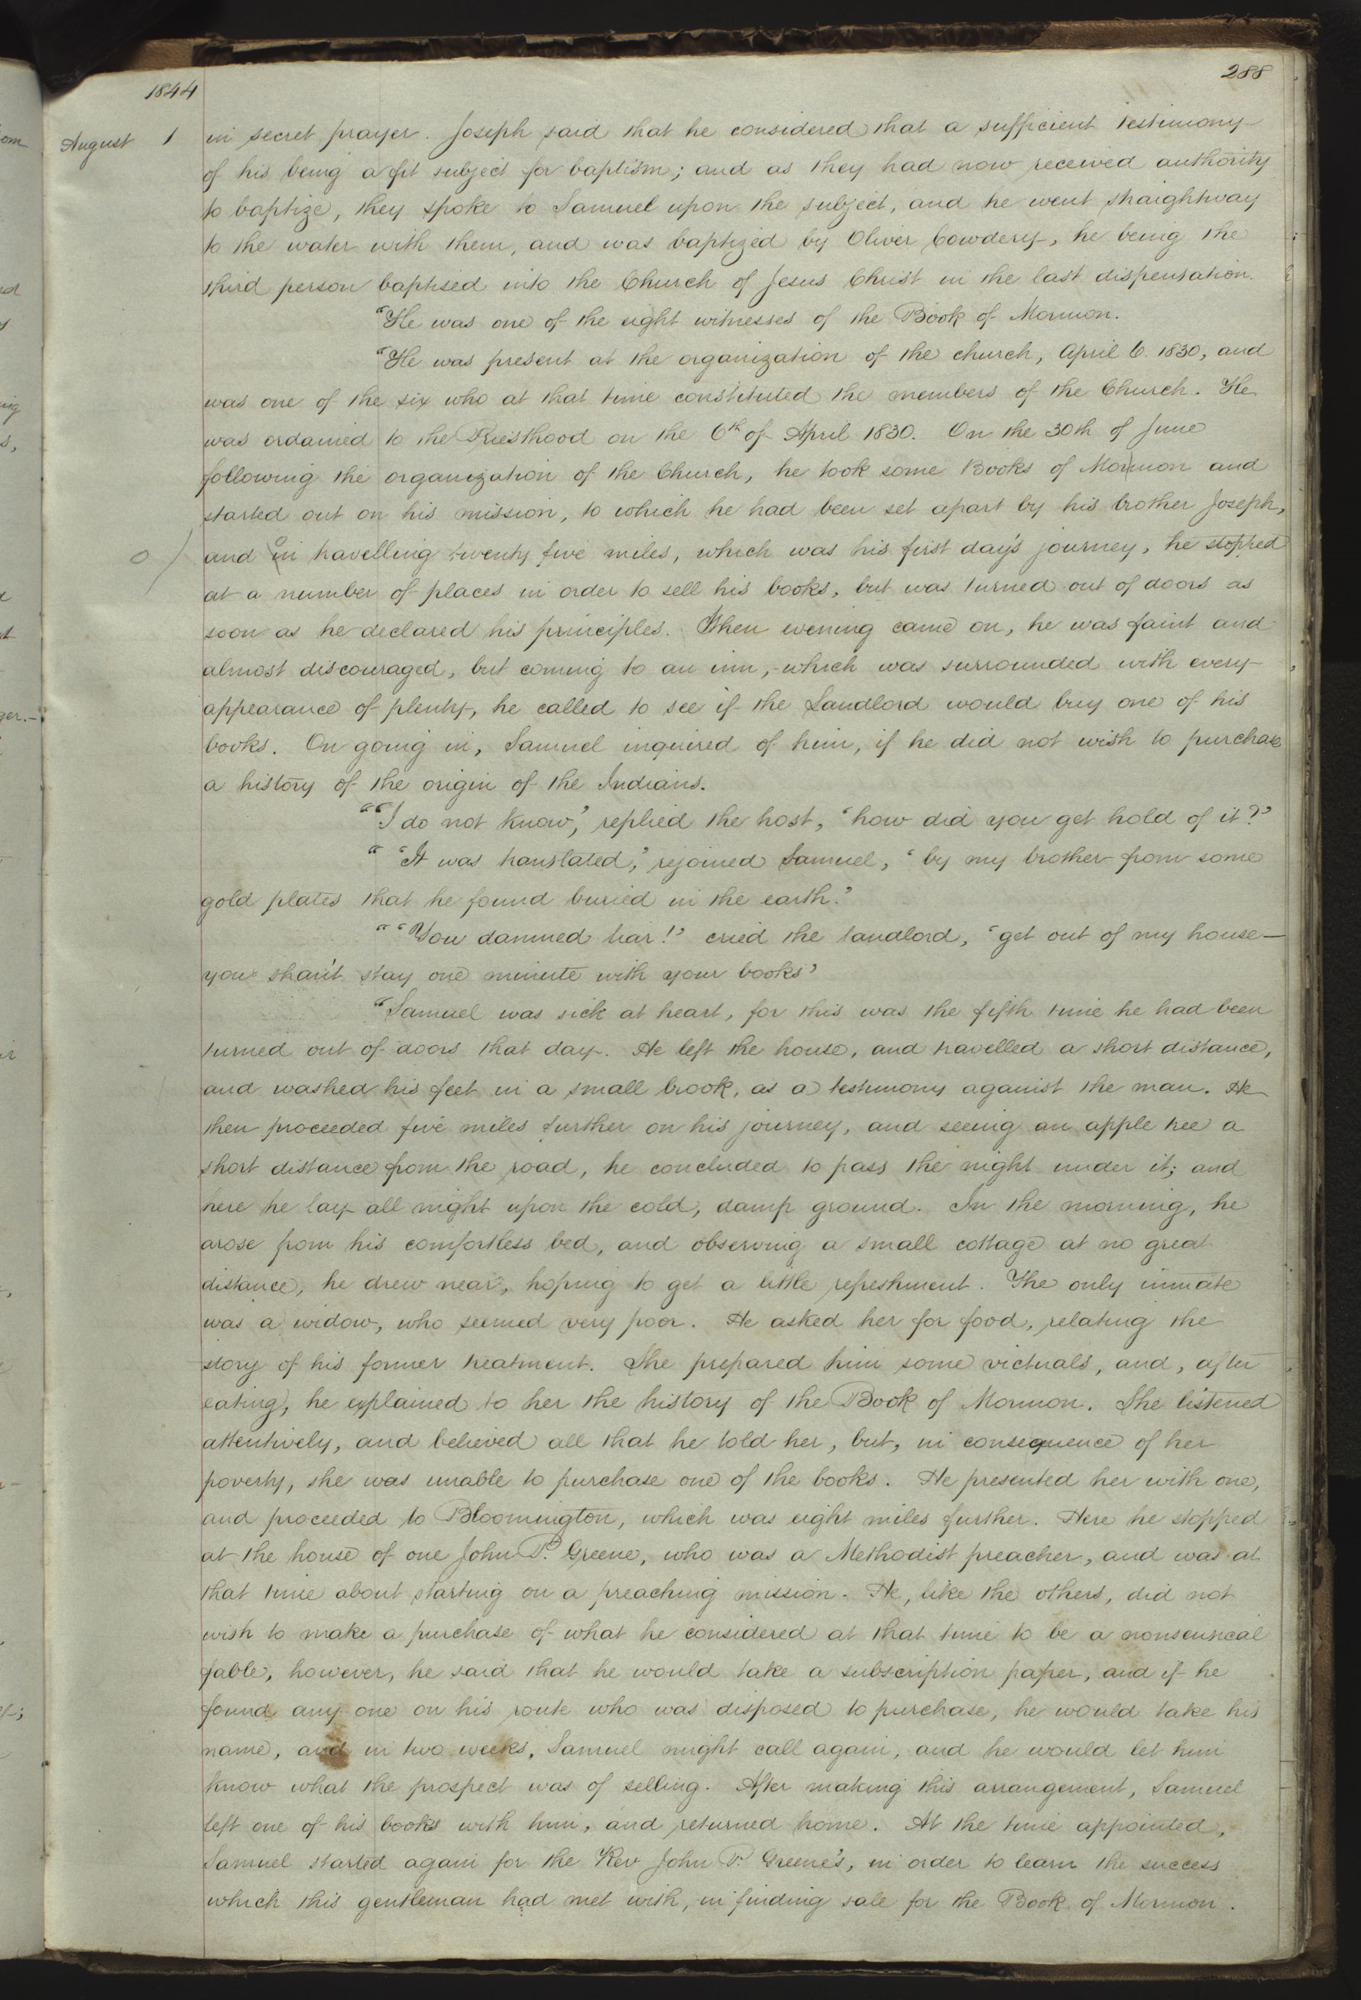 288
1844
August 1 in secret prayer. Joseph said that he considered that a sufficient testimony
of his being a fit subject for baptism; and as they had now received authority
to baptize, they spoke to Samuel upon the subject, and he went straightway
to the water with them, and was baptized by Oliver Cowdery, he being the
third person baptised into the Church of Jesus Christ in the last dispensation.
"He was one of the eight witnesses of the Book of Mormon.
"He was present at the organization of the church, April 6. 1830, and
was one of the six who at that time constituted the members of the Church. He
was ordained to the Priesthood on the 6th of April 1830. On the 30th of June
following the organization of the Church, he took some Books of Mormon and
started out on his mission, to which he had been set apart by his brother Joseph,
and in travelling twenty five miles, which was his first day's journey, he stopped
at a number of places in order to sell his books, but was turned out of doors as
soon as he declared his principles. When evening came on, he was faint and
almost discouraged, but coming to an inn, which was surrounded with every
appearance of plenty, he called to see if the Landlord would buy one of his
books. On going in, Samuel inquired of him, if he did not wish to purchase
a history of the origin of the Indians.
"'I do not know,' replied the host, 'how did you get hold of it?'
"'It was translated,' rejoined Samuel, 'by my brother from some
gold plates that he found buried in the earth.'
"'You damned liar!' cried the landlord, 'get out of my house—
you shan't stay one minute with your books'
"Samuel was sick at heart, for this was the fifth time he had been
turned out of doors that day. He left the house, and travelled a short distance,
and washed his feet in a small brook, as a testimony against the man. He
then proceeded five miles further on his journey, and seeing an apple tree a
short distance from the road, he concluded to pass the night under it; and
here he lay all night upon the cold, damp ground. In the morning, he
arose from his comfortless bed, and observing a small cottage at no great
distance, he drew near, hoping to get a little refreshment. The only inmate
was a widow, who seemed very poor. He asked her for food, relating the
story of his former treatment. She prepared him some victuals, and, after
eating, he explained to her the history of the Book of Mormon. She listened
attentively, and believed all that he told her, but, in consequence of her
poverty, she was unable to purchase one of the books. He presented her with one,
and proceeded to Bloomington, which was eight miles further. Here he stopped
at the house of one John P. Greene, who was a Methodist preacher, and was at
that time about starting on a preaching mission. He, like the others, did not
wish to make a purchase of what he considered at that time to be a nonsensical
fable, however, he said that he would take a subscription paper, and if he
found any one on his route who was disposed to purchase, he would take his
name, and in two weeks, Samuel might call again, and he would let him
know what the prospect was of selling. After making this arrangement, Samuel
left one of his books with him, and returned home. At the time appointed,
Samuel started again for the Rev John P. Greene's, in order to learn the success
which this gentleman had met with, in finding sale for the Book of Mormon.